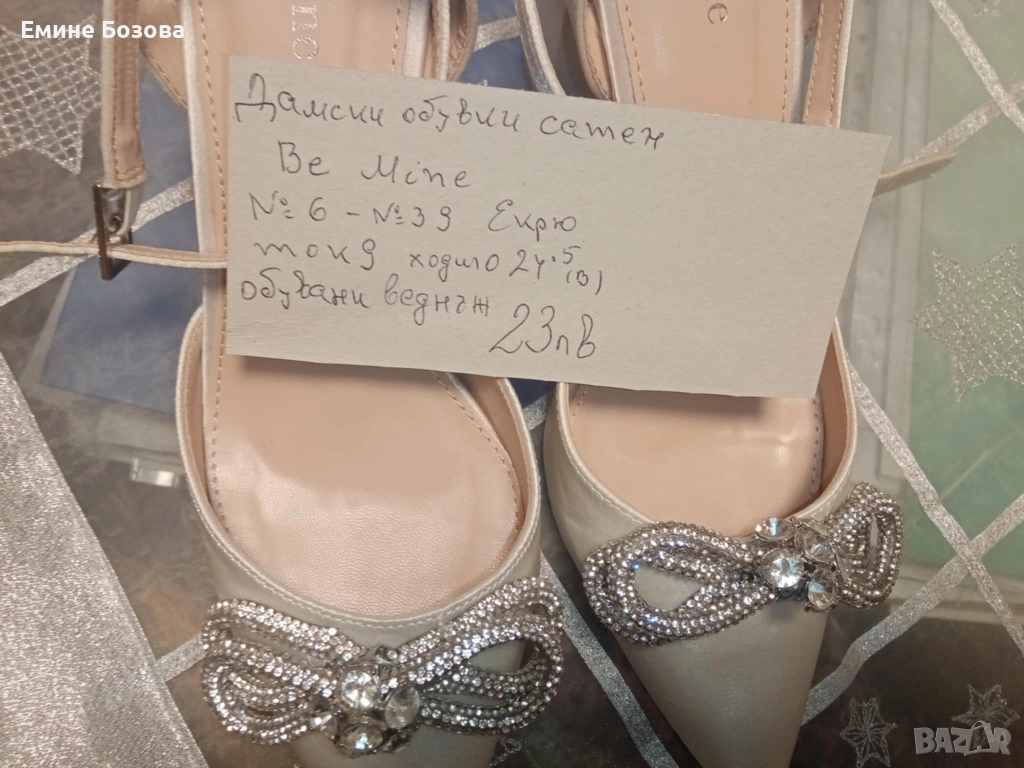 Емине Бозова
Дамски обувки сатен
Be Mine
№ 6 - № 39 Екрю
ток 9 ходило 24.5
обувани веднъж
23лв
BAZAR